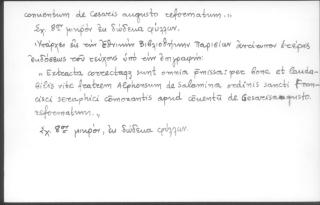 conventum de Cesaris augusto reformatum.„
Σχ. 8ον μικρόν ἐκ δώδεκα φύλλων.
Ὑπάρχει ἐν τῇ Ἐθνικῇ Βιβλιοθήκῃ Παρισίων ἀντίτυπον
ἐκδόσεως τοῦ τεύχους ὑπὸ τὴν ἐπιγραφήν:
„ Extracta correctaqz sunt omnia p̄missa: per hone et lauda-
bilis vite fratrem Alphonsum de Salamina ordinis sancti Fran-
cisci seraphici cōmorantis apud cōuentū de Cesarisaugusto
reformatum.„
Σχ. 8ον μικρόν, ἐκ δώδεκα φύλλων.